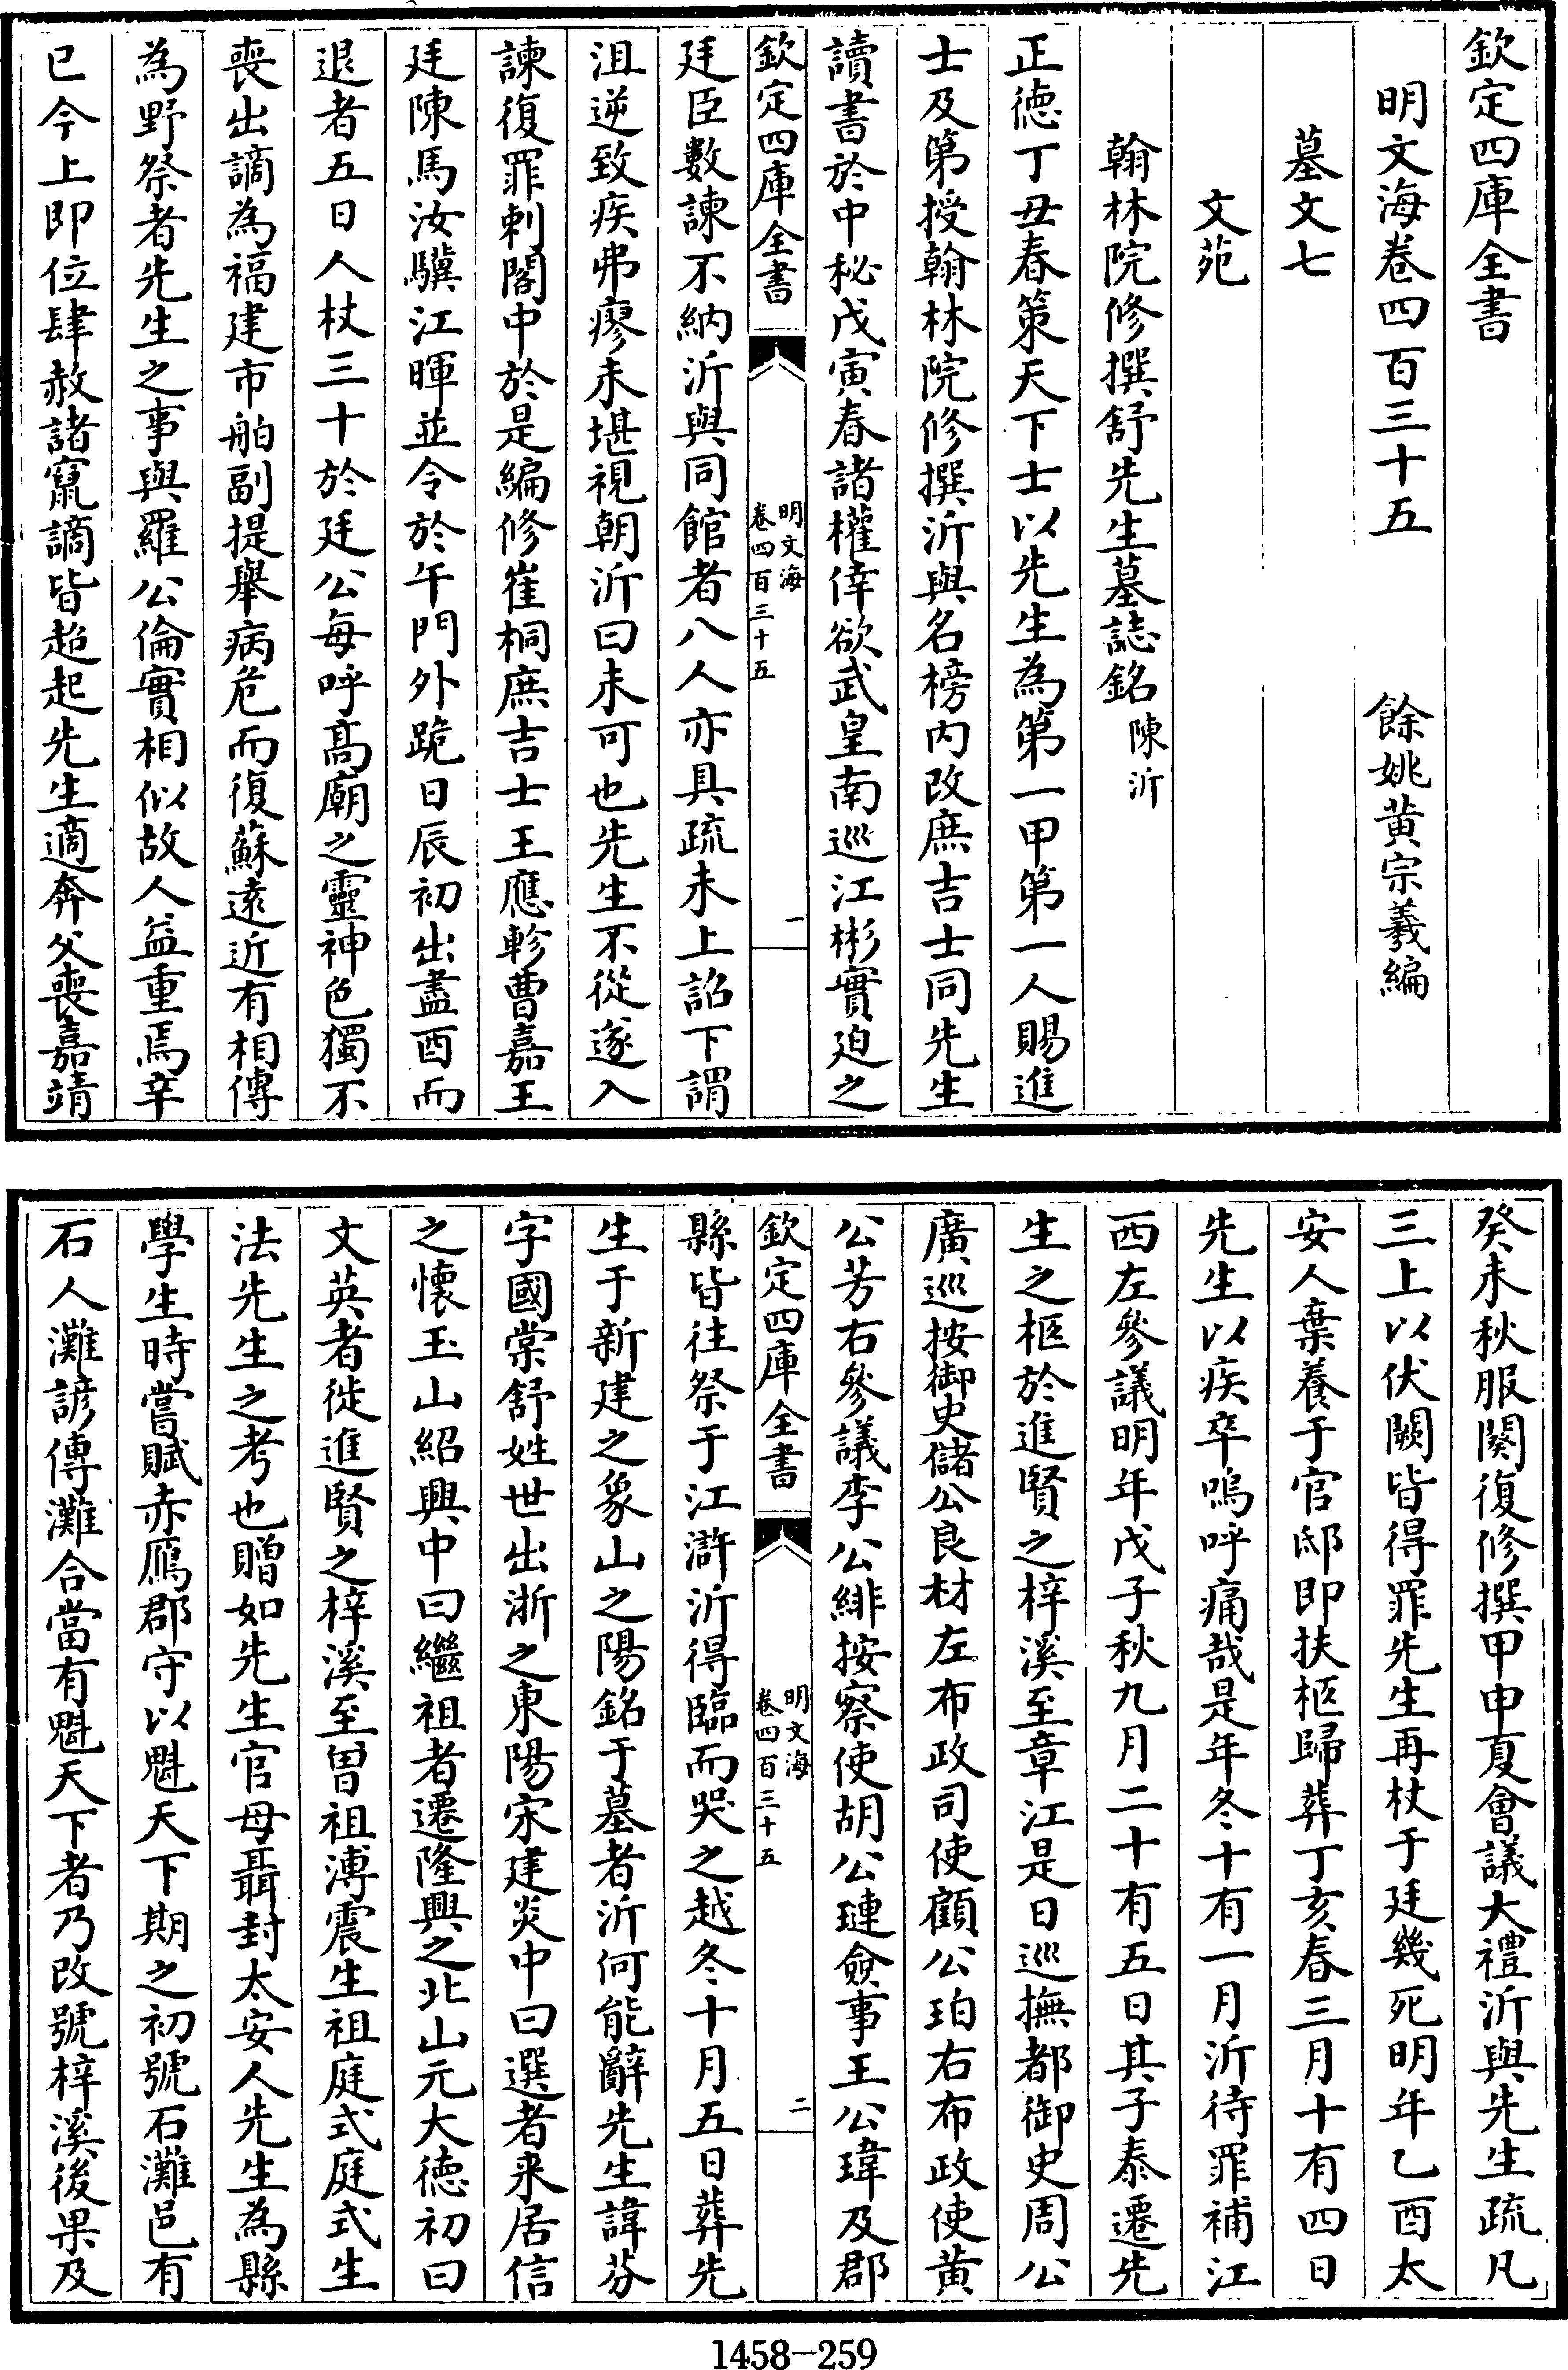 欽定四庫全書
明文海卷四百三十五
餘姚黄宗羲編
墓文七
文苑
翰林院修撰舒先生墓誌銘陳沂
正徳丁丑春策天下士以先生為第一甲第一人賜進
士及第授翰林院修撰沂與名榜内改庶吉士同先生
讀書於中秘戊寅春諸權倖欲武皇南巡江彬實廹之
欽定四庫全書
明文海
卷四百三十五
一
廷臣數諫不納沂與同館者八人亦具疏未上詔下謂
沮逆致疾弗瘳未堪視朝沂曰未可也先生不從遂入
諫復罪刺閣中於是編修崔桐庶吉士王應軫曹嘉王
廷陳馬汝驥江暉並令於午門外跪日辰初出盡酉而
退者五日人杖三十於廷公每呼髙廟之靈神色獨不
喪出謫為福建市舶副提舉病危而復蘇逺近有相傳
為野祭者先生之事與羅公倫實相似故人益重焉辛
巳今上即位肆赦諸竄謫皆超起先生適奔父喪嘉靖
癸未秋服闋復修撰甲申夏會議大禮沂與先生疏凡
三上以伏闕皆得罪先生再杖于廷幾死明年乙酉太
安人棄養于官邸即扶柩歸葬丁亥春三月十有四日
先生以疾卒嗚呼痛哉是年冬十有一月沂待罪補江
西左參議明年戊子秋九月二十有五日其子泰遷先
生之柩於進賢之梓溪至章江是日巡撫都御史周公
廣巡按御史儲公良材左布政司使顧公珀右布政使黄
公芳右參議李公緋按察使胡公璉僉事王公瑋及郡
欽定四庫全書
明文海
卷四百三十五
二
縣皆往祭于江滸沂得臨而哭之越冬十月五日葬先
生于新建之象山之陽銘于墓者沂何能辭先生諱芬
字國棠舒姓世出浙之東陽宋建炎中曰選者来居信
之懷玉山紹興中曰繼祖者遷隆興之北山元大徳初曰
文英者徙進賢之梓溪至曽祖溥震生祖庭式庭式生
法先生之考也贈如先生官母聶封太安人先生為縣
學生時嘗賦赤鴈郡守以魁天下期之初號石灘邑有
石人灘諺傳灘合當有魁天下者乃改號梓溪後果及
1458-259